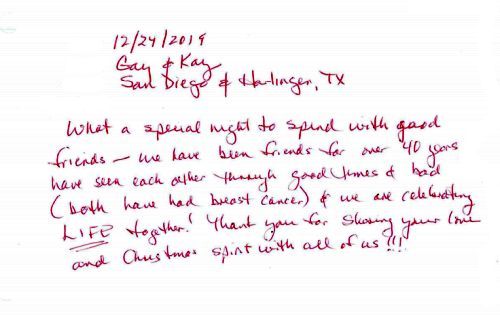 12/24/2019
Gay & Kay
San Diego & Harlingen, TX
What a special night to spend with good
friends – we have been friends for over 40 years
have seen each other through good times & bad
(both have had breast cancer) & we are celebrating
LIFE together! Thank you for sharing your love
and Christmas spirit with all of us!!!